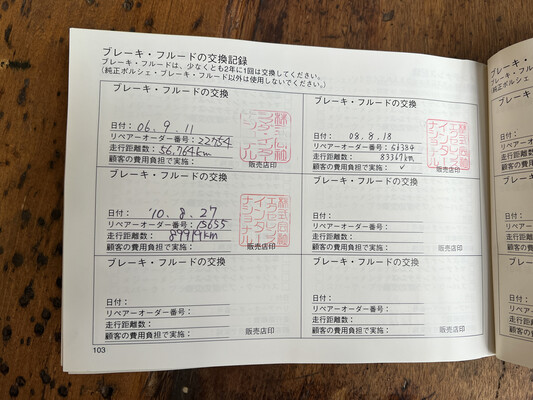 ブレーキ・フルードの交換記録
ブレーキ・フルードは、少なくとも2年に1回は交換してください。
(純正ポルシェ・ブレーキ・フルード以外は使用しないでください。)
ブレーキ・フルードの交換
日付: 06. 9. 11
リペアーオーダー番号: 22754
走行距離数: 56,764km
顧客の費用負担で実施:
販売店印
ブレーキ・フルードの交換
日付: 08. 8. 18
リペアーオーダー番号: 61384
走行距離数: 83367km
顧客の費用負担で実施: ✓
販売店印
株式会社
エクセレンス
インター
ナショナル
ブレーキ・フルードの交換
日付: '10. 8. 27
リペアーオーダー番号: 15655
走行距離数:
顧客の費用負担で実施:
販売店印
株式会社
エクセレンス
インター
ナショナル
ブレーキ・フルードの交換
日付:
リペアーオーダー番号:
走行距離数:
顧客の費用負担で実施:
販売店印
ブレーキ・フルードの交換
日付:
リペアーオーダー番号:
走行距離数:
顧客の費用負担で実施:
販売店印
ブレーキ・フルードの交換
日付:
リペアーオーダー番号:
走行距離数:
顧客の費用負担で実施:
販売店印
103